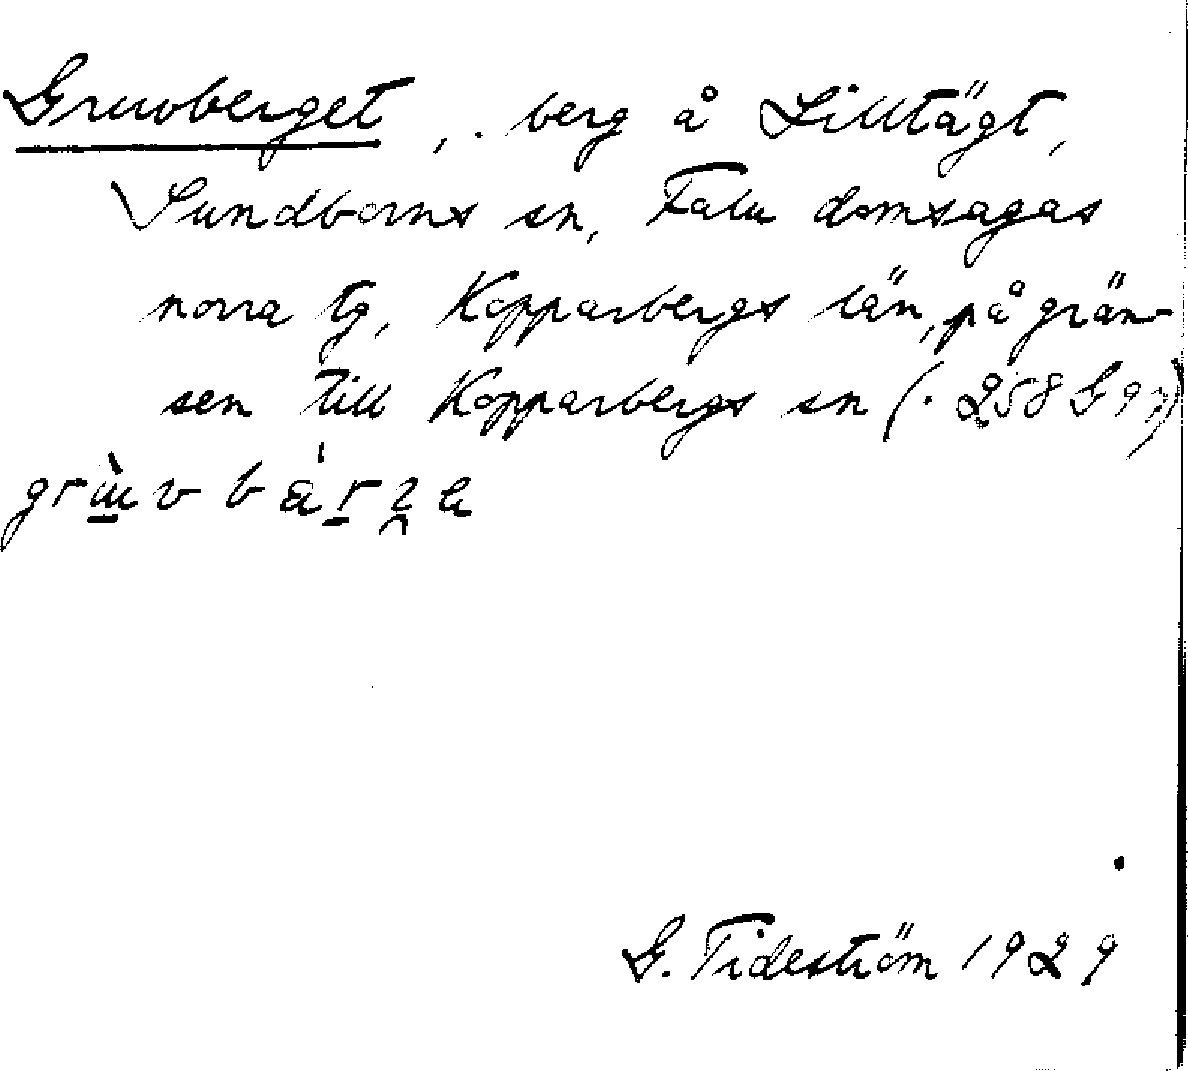 Gruvberget, berg å Lilltägt,
Sundborns sn, Falu domsagas
norra tg, Kopparbergs län, på grän-
sen till Kopparbergs sn (258 G 97)
G. Tideström 1929